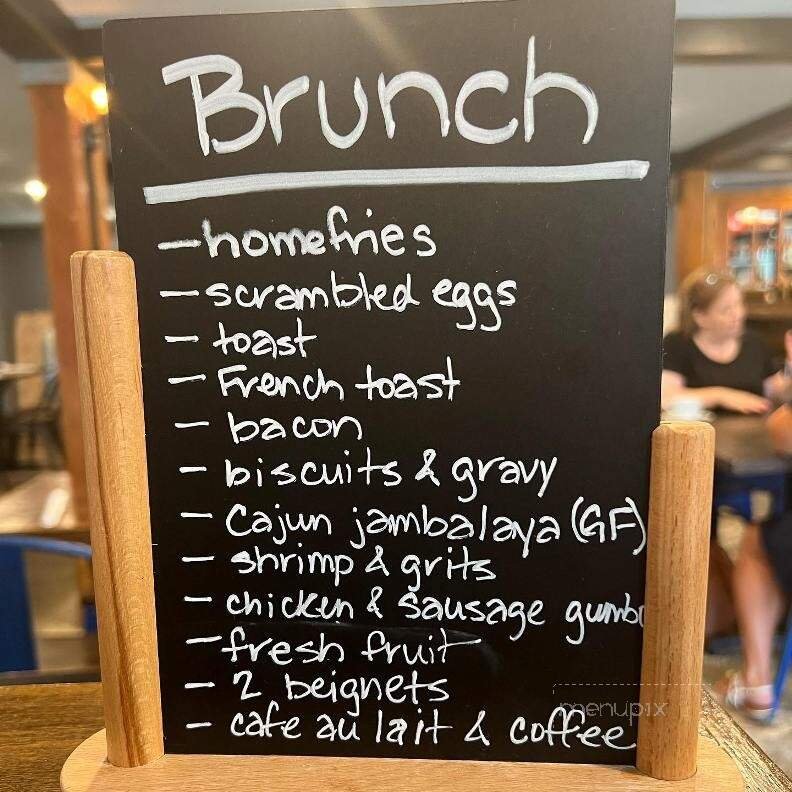 Brunch
- homefries
- scrambled eggs
- toast
- French toast
- bacon
- biscuits & gravy
- Cajun jambalaya (GF)
- shrimp & grits
- chicken & sausage gumbo
- fresh fruit
- 2 beignets
menupix
- cafe au lait & coffee